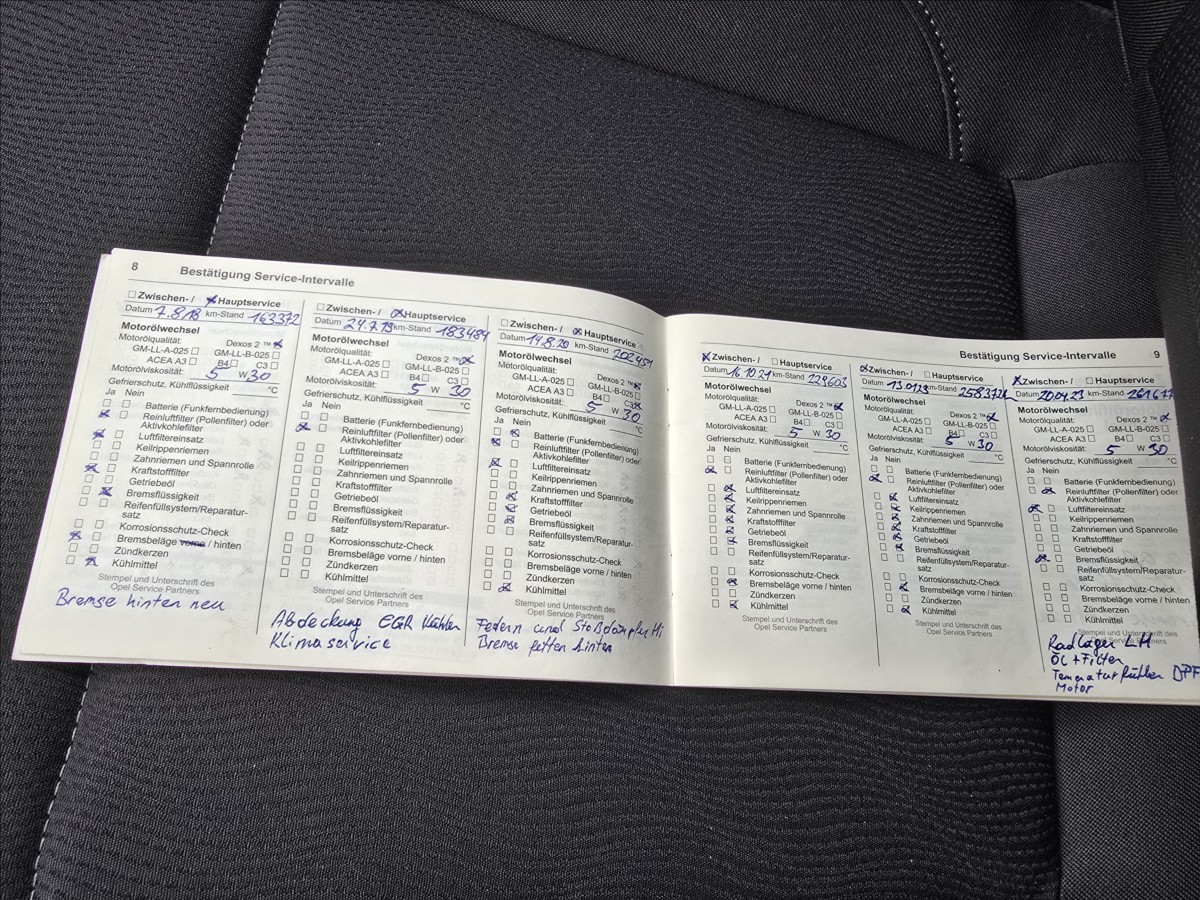 8
Bestätigung Service-Intervalle
Zwischen- / Hauptservice
Datum 7.8.18 km-Stand 163372
Motorölwechsel
Motorölqualität: Dexos 2 ™
GM-LL-A-025 GM-LL-B-025
ACEA A3 B4 C3
Motorölviskosität: 5 W 30
Gefrierschutz, Kühlflüssigkeit °C
Ja Nein
Batterie (Funkfernbedienung)
Reinluftfilter (Pollenfilter) oder
Aktivkohlefilter
Luftfiltereinsatz
Keilrippenriemen
Zahnriemen und Spannrolle
Kraftstofffilter
Getriebeöl
Bremsflüssigkeit
Reifenfüllsystem/Reparatur-
satz
Korrosionsschutz-Check
Bremsbeläge vorne / hinten
Zündkerzen
Kühlmittel
Stempel und Unterschrift des
Opel Service Partners
Bremse hinten neu
Zwischen- / Hauptservice
Datum 24.7.19 km-Stand 183484
Motorölwechsel
Motorölqualität: Dexos 2 ™
GM-LL-A-025 GM-LL-B-025
ACEA A3 B4 C3
Motorölviskosität: 5 W 30
Gefrierschutz, Kühlflüssigkeit °C
Ja Nein
Batterie (Funkfernbedienung)
Reinluftfilter (Pollenfilter) oder
Aktivkohlefilter
Luftfiltereinsatz
Keilrippenriemen
Zahnriemen und Spannrolle
Kraftstofffilter
Getriebeöl
Bremsflüssigkeit
Reifenfüllsystem/Reparatur-
satz
Korrosionsschutz-Check
Bremsbeläge vorne / hinten
Zündkerzen
Kühlmittel
Stempel und Unterschrift des
Opel Service Partners
Abdeckung EGR Kühler
Klimaservice
Zwischen- / Hauptservice
Datum 14.8.20 km-Stand 202451
Motorölwechsel
Motorölqualität: Dexos 2 ™
GM-LL-A-025 GM-LL-B-025
ACEA A3 B4 C3
Motorölviskosität: 5 W 30
Gefrierschutz, Kühlflüssigkeit °C
Ja Nein
Batterie (Funkfernbedienung)
Reinluftfilter (Pollenfilter) oder
Aktivkohlefilter
Luftfiltereinsatz
Keilrippenriemen
Zahnriemen und Spannrolle
Kraftstofffilter
Getriebeöl
Bremsflüssigkeit
Reifenfüllsystem/Reparatur-
satz
Korrosionsschutz-Check
Bremsbeläge vorne / hinten
Zündkerzen
Kühlmittel
Stempel und Unterschrift des
Opel Service Partners
Federn und Stoßdämpfer Hi
Bremse hinten
Bestätigung Service-Intervalle 9
Zwischen- / Hauptservice
Datum 16.10.21 km-Stand 229603
Motorölwechsel
Motorölqualität: Dexos 2 ™
GM-LL-A-025 GM-LL-B-025
ACEA A3 B4 C3
Motorölviskosität: 5 W 30
Gefrierschutz, Kühlflüssigkeit °C
Ja Nein
Batterie (Funkfernbedienung)
Reinluftfilter (Pollenfilter) oder
Aktivkohlefilter
Luftfiltereinsatz
Keilrippenriemen
Zahnriemen und Spannrolle
Kraftstofffilter
Getriebeöl
Bremsflüssigkeit
Reifenfüllsystem/Reparatur-
satz
Korrosionsschutz-Check
Bremsbeläge vorne / hinten
Zündkerzen
Kühlmittel
Stempel und Unterschrift des
Opel Service Partners
Zwischen- / Hauptservice
Datum km-Stand
Motorölwechsel
Motorölqualität: Dexos 2 ™
GM-LL-A-025 GM-LL-B-025
ACEA A3 B4 C3
Motorölviskosität: 5 W 30
Gefrierschutz, Kühlflüssigkeit °C
Ja Nein
Batterie (Funkfernbedienung)
Reinluftfilter (Pollenfilter) oder
Aktivkohlefilter
Luftfiltereinsatz
Keilrippenriemen
Zahnriemen und Spannrolle
Kraftstofffilter
Getriebeöl
Bremsflüssigkeit
Reifenfüllsystem/Reparatur-
satz
Korrosionsschutz-Check
Bremsbeläge vorne / hinten
Zündkerzen
Kühlmittel
Stempel und Unterschrift des
Opel Service Partners
Zwischen- / Hauptservice
Datum 20.04.23 km-Stand
Motorölwechsel
Motorölqualität: Dexos 2 ™
GM-LL-A-025 GM-LL-B-025
ACEA A3 B4 C3
Motorölviskosität: 5 W 30
Gefrierschutz, Kühlflüssigkeit °C
Ja Nein
Batterie (Funkfernbedienung)
Reinluftfilter (Pollenfilter) oder
Aktivkohlefilter
Luftfiltereinsatz
Keilrippenriemen
Zahnriemen und Spannrolle
Kraftstofffilter
Getriebeöl
Bremsflüssigkeit
Reifenfüllsystem/Reparatur-
satz
Korrosionsschutz-Check
Bremsbeläge vorne / hinten
Zündkerzen
Kühlmittel
Stempel und Unterschrift des
Opel Service Partners
Radlager LH
Öl + Filter
Temperaturfühler DPF
Motor